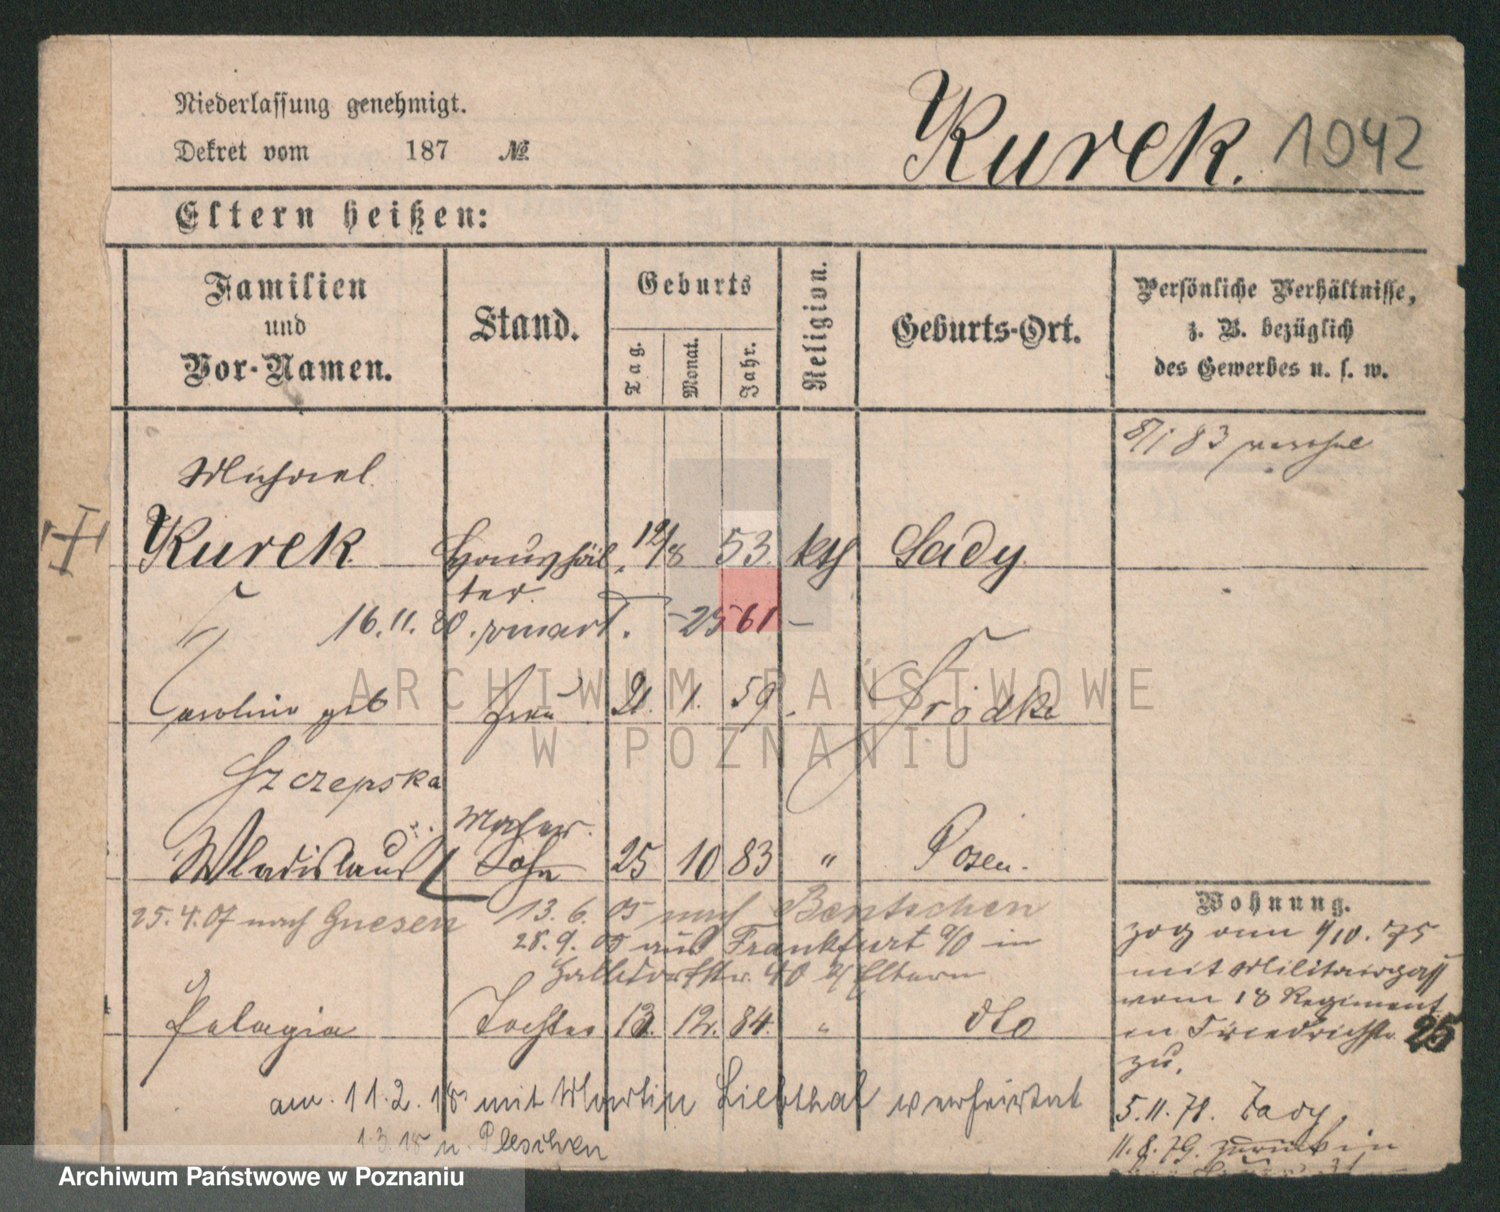 Niederlassung genehmigt.
Dekret vom 187 №
Kurek. 1042
Eltern heißen:
Familien und Vor-Namen.
Stand.
Geburts
Tag. Monat. Jahr.
Religion.
Geburts-Ort.
Persönliche Verhältnisse,
z. B. bezüglich
des Gewerbes u. s. w.
8/1 83
Michael
Kurek Haushäl- 12/8 53. kth Sady
ter.
16.11.80. -2561-
Caroline geb Frau 21. 1. 59.
Szczepska
Wladislaus Sohn 25 10 83 " Posen.
25.4.07 nach Gnesen 13.6.05 nach Bentschen
28.9.05 aus Frankfurt a/O in
40 Eltern
Pelagia Tochter 12. 84. " dto
am 11.2.18 mit Martin Liebthal verheiratet
1.3.18 n. Pleschen
Wohnung.
zog am 1/10.75
mit Militairpaß
vom 18 Regiment
in Friedrichstr. 25
zu.
5.11.78. Sady.
11.8.79. zurück in
ARCHIWUM PAŃSTWOWE
W POZNANIU
Archiwum Państwowe w Poznaniu